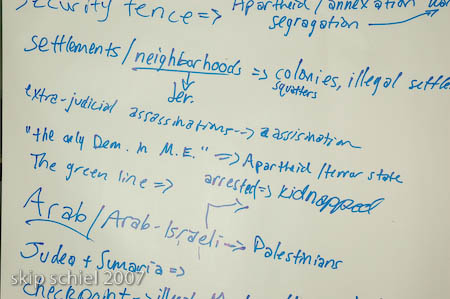 security fence => Apartheid / annexation wall
segragation
settlements / neighborhoods => colonies, illegal settle
squatters
Jer.
extra-judicial assassinations --> assasination
"the only Dem. in M.E." => Apartheid / terror state
The green line => arrested => kidnapped
Arab / Arab-Israeli --> Palestinians
Judea + Sumaria =>
skip schiel 2007
Checkpoint -> illegal